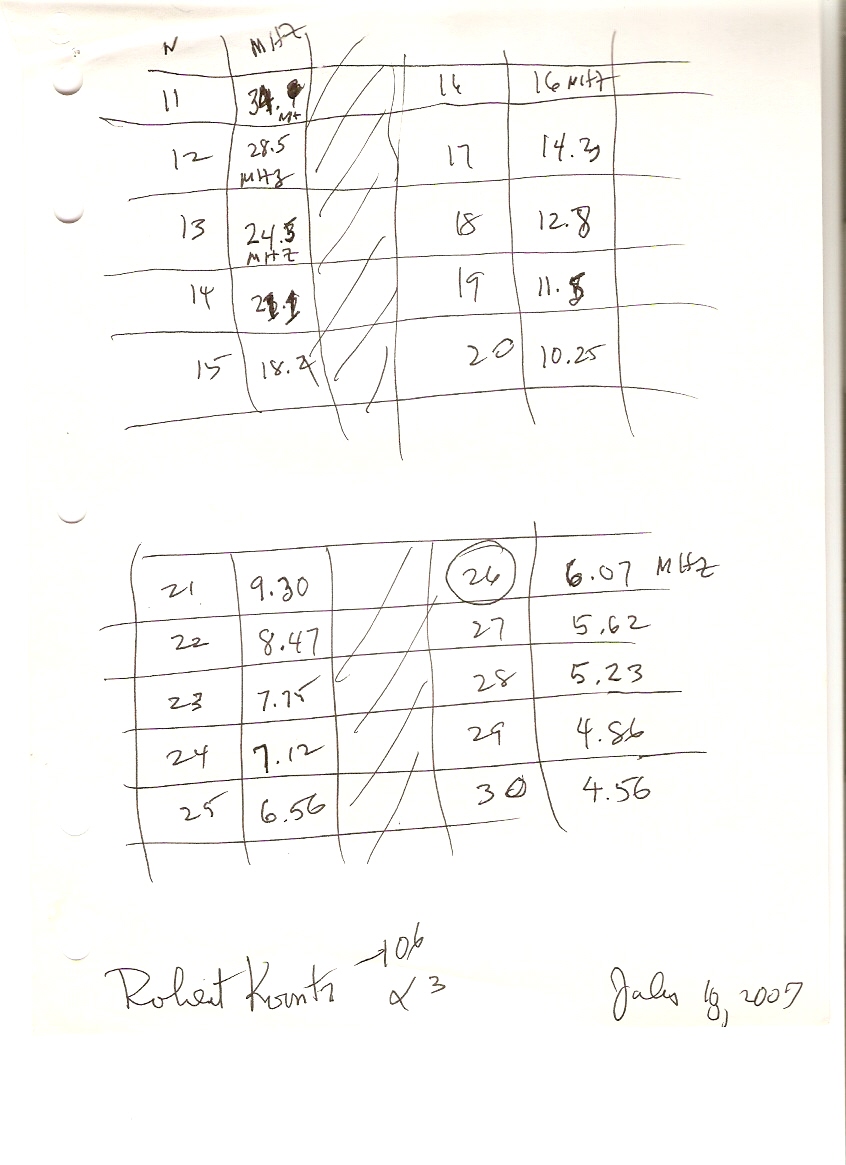 N MHZ
11 34.9 MH 16 16 MHZ
12 28.5 MHZ 17 14.3
13 24.5 MHZ 18 12.8
14 21.1 19 11.5
15 18.4 20 10.25
21 9.30 26 6.07 MHZ
22 8.47 27 5.62
23 7.75 28 5.23
24 7.12 29 4.86
25 6.56 30 4.56
Robert Kountz 106 3 July 18, 2007